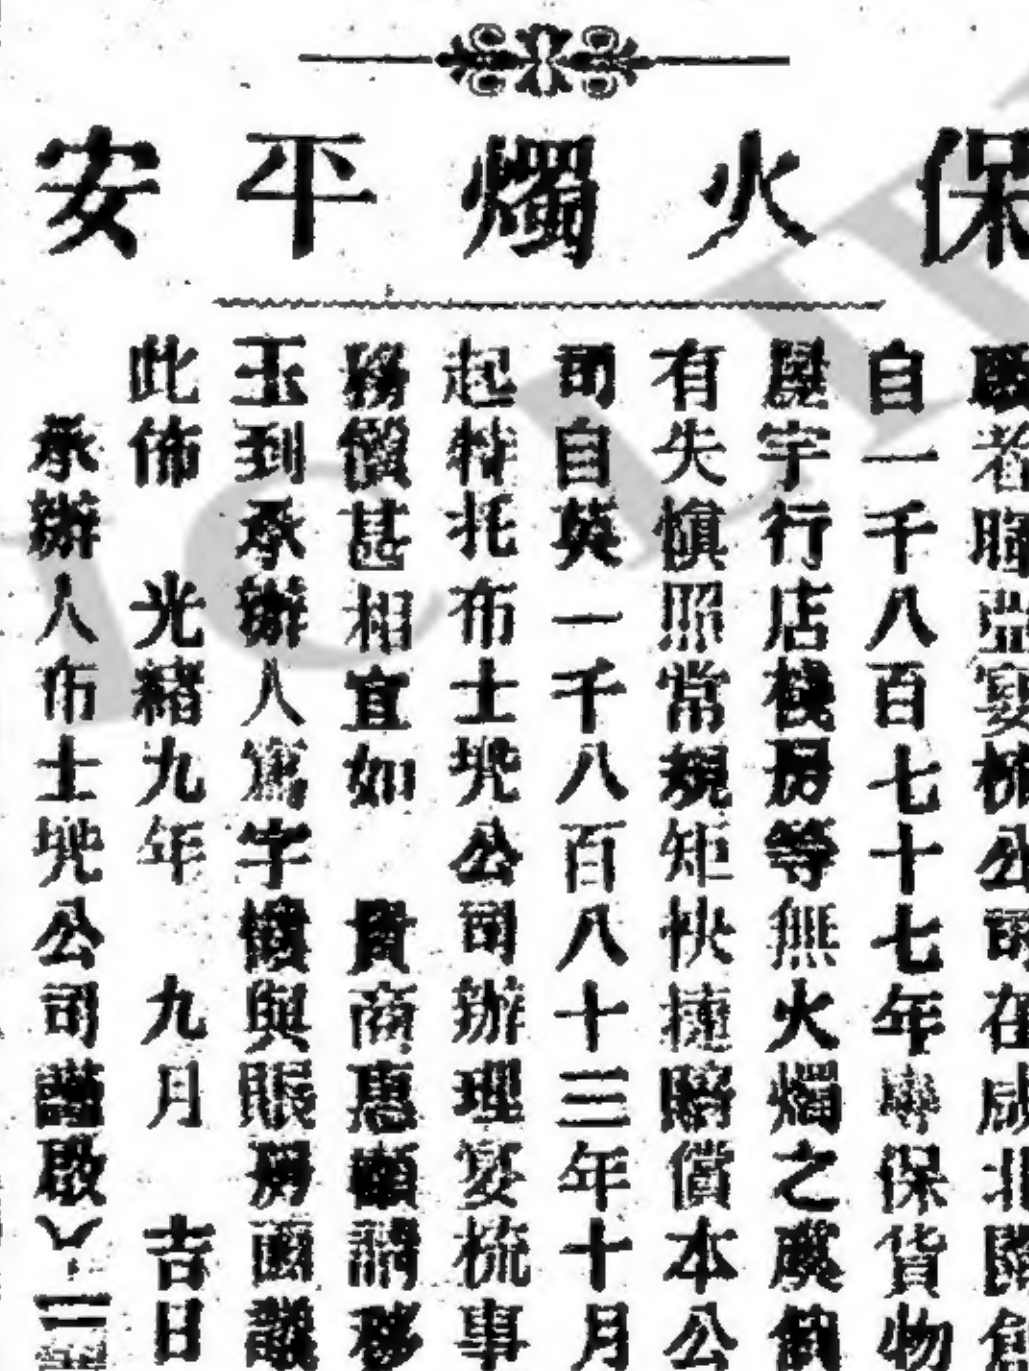 保火燭平安
啟者暉亞宴梳公司在咸北闢創
自一千八百七十七年專保貨物
屋宇行店棧房等無火燭之虞倘
有失慎照常規矩快捷賠償本公
司自英一千八百八十三年十月
起特托布士兜公司辦理宴梳事
務價甚相宜如 貴商惠顧請移
玉到承辦人寫字樓與賬房面議
此佈 光緒九年 九月 吉日
承辦人布士兜公司謹啟